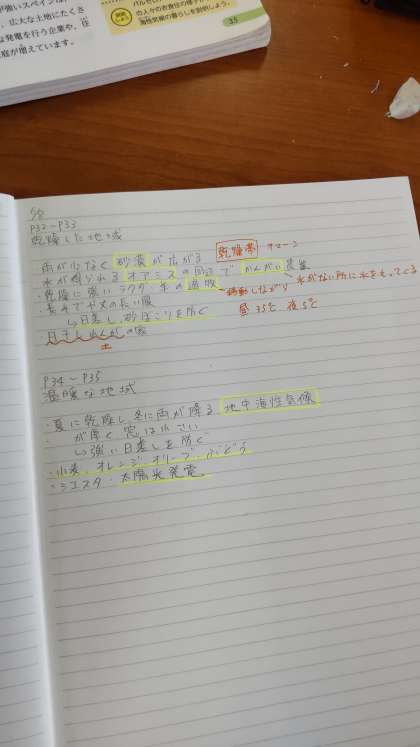 が強いスペインは、
、広大な土地にたくさ
な発電を行う企業や、住
庭が増えています。
の人々の衣食住の様子
海性気候の暮らしを説明しよう。
35
P32〜P33
乾燥した地域
乾燥帯
雨が少なく砂漠が広がる
水が得られるオアシスの周辺でかんがい装置
水がない所に水をもってくる
・乾燥に強いラクダ 羊の遊牧
移動しながら
昼35℃ 夜5℃
・長そでや丈の長い服
↳日差し、砂ぼこりを防ぐ
日干しれんがの家
土
P34〜P35
温暖な地域
・夏に乾燥し冬に雨が降る 地中海性気候
・が厚く 窓は小さい
↳強い日差しを防ぐ
・小麦、オレンジ オリーブ、ぶどう
・シエスタ・太陽光発電